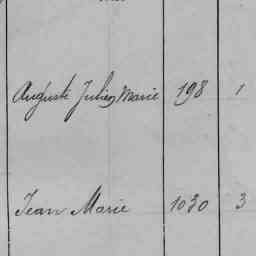 Auguste Julien Marie 198 1
Jean Marie 1030 3